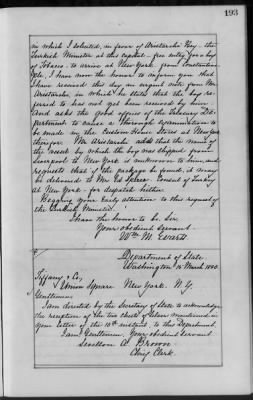 193
in which I solicited, in favor of Aristarchi Bey, the
Turkish Minister at this capital, free entry for a box
of Tobacco, to arrive at New York, from Constantinople,
I have now the honor to inform you that
I have received this day an urgent note from Mr.
Aristarchi, in which he states that the box re-
ferred to has not yet been received by him.
And asks the good offices of the Treasury De-
partment to cause a thorough examination to
be made in the Custom House Stores at New York
therefor. Mr. Aristarchi adds that the name of
the vessel by which the box was shipped from
Liverpool to New York is unknown to him, and
requests that if the package be found, it may
be delivered to Mr. Consul of Turkey
at New York, for despatch hither.
Begging your early attention to this request of
the Turkish Minister,
I have the honor to be, Sir,
Your obedient servant,
Wm. M. Evarts
Department of State
Washington, 15 March 1880.
Tiffany & Co.,
Union Square New York. N.Y.
Gentlemen:
I am directed by the Secretary of State to acknowledge
the reception of the two chests of silver mentioned in
your letter of the 10th instant, to this Department.
I am, Gentlemen, Your obedient servant
Sevellon A. Brown
Chief Clerk.